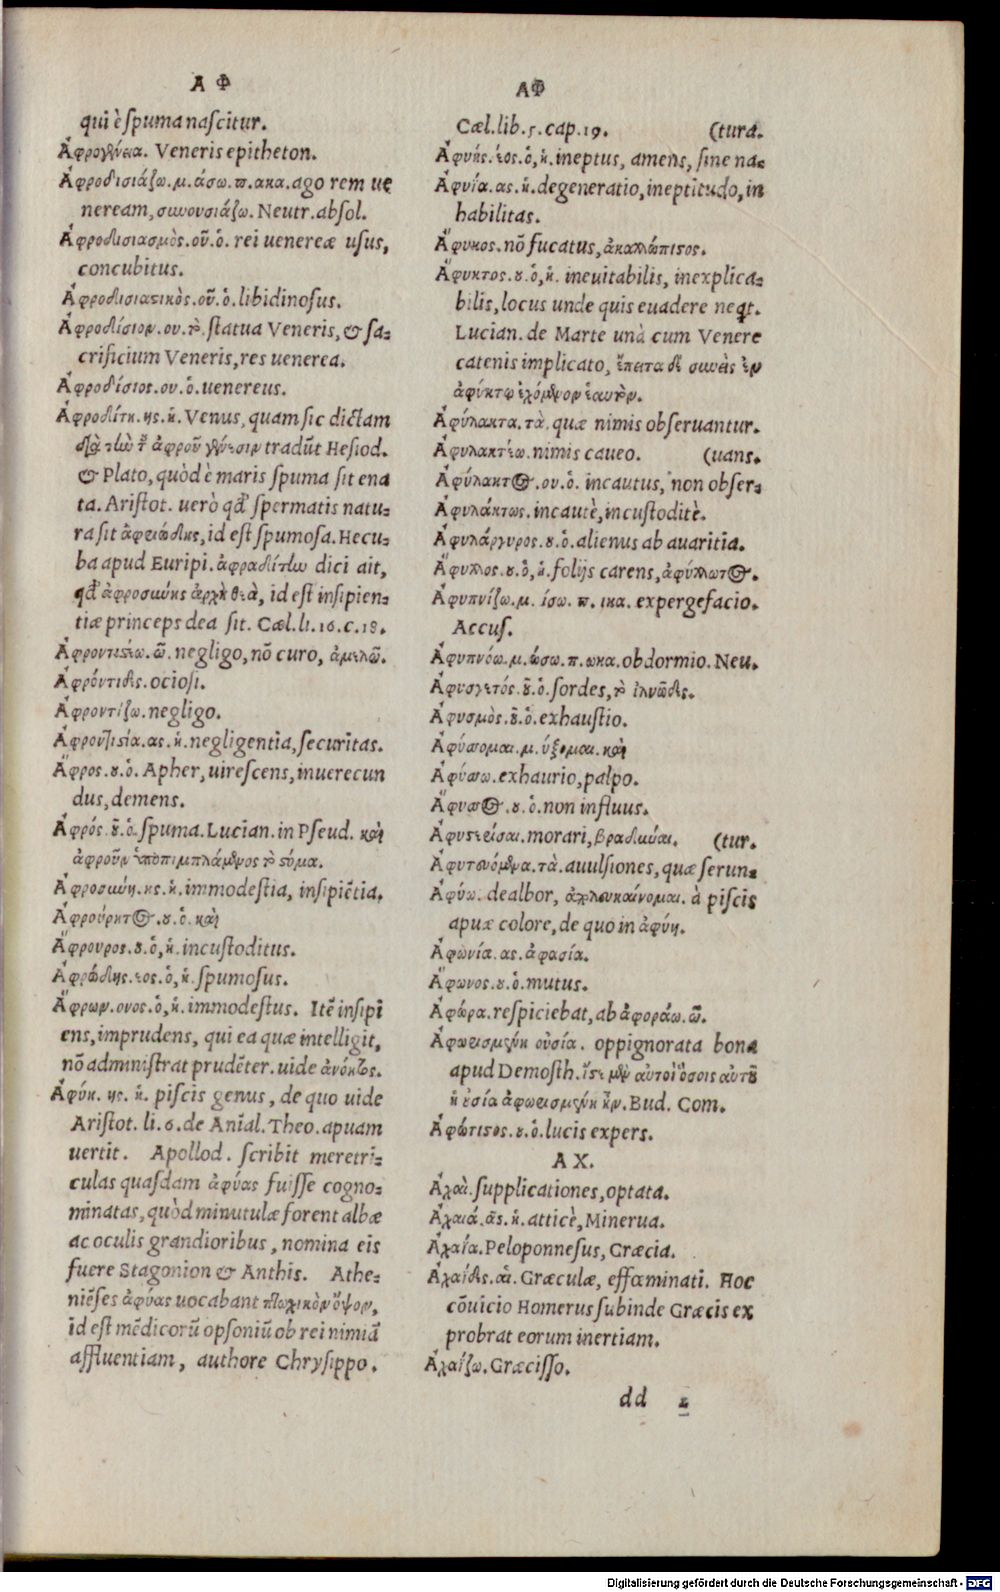 Α Φ
qui è spuma nascitur.
Ἀφρογένεια. Veneris epitheton.
Ἀφροδισιάζω. μ. άσω. π. ακα. ago rem ue
neream, συνουσιάζω. Neutr. absol.
Ἀφροδισιασμὸς. οῦ. ὁ. rei uenereæ usus,
concubitus.
Ἀφροδισιαστικὸς. οῦ. ὁ. libidinosus.
Ἀφροδίσιον. ου. τὸ. statua Veneris, & sa-
crificium Veneris, res uenerea.
Ἀφροδίσιος. ου. ὁ. uenereus.
Ἀφροδίτη. ης. ἡ. Venus, quam sic dictam
διὰ τὴν τοῦ ἀφροῦ γένεσιν tradūt Hesiod.
& Plato, quòd è maris spuma sit ena
ta. Aristot. uerò qd' spermatis natu-
ra sit ἀφρώδης, id est spumosa. Hecu-
ba apud Euripi. ἀφροδίτην dici ait,
qd' ἀφροσύνης ἀρχὴ θεὰ, id est insipien-
tiæ princeps dea sit. Cæl. li. 16. c. 18.
Ἀφροντιστέω. ῶ. negligo, nō curo, ἀμελῶ.
Ἀφρόντιδες. ociosi.
Ἀφροντίζω. negligo.
Ἀφροντισία. ας. ἡ. negligentia, securitas.
Ἄφρος. ου. ὁ. Apher, uirescens, inuerecun
dus, demens.
Ἀφρός. οῦ. ὁ. spuma. Lucian. in Pseud. καὶ
ἀφροῦ ὑποπιμπλάμενος τὸ στόμα.
Ἀφροσύνη. ης. ἡ. immodestia, insipiētia.
Ἀφρούρητος. ου. ὁ. καὶ
Ἄφρουρος. ου. ὁ, ἡ. incustoditus.
Ἀφρώδης. εος. ὁ, ἡ. spumosus.
Ἄφρων. ονος. ὁ, ἡ. immodestus. Itē insipi
ens, imprudens, qui ea quæ intelligit,
nō administrat prudēter. uide ἀνόητος.
Ἀφύη. ης. ἡ. piscis genus, de quo uide
Aristot. li. 6. de Anīal. Theo. apuam
uertit. Apollod. scribit meretri-
culas quasdam ἀφύας fuisse cogno-
minatas, quòd minutulæ forent albæ
ac oculis grandioribus, nomina eis
fuere Stagonion & Anthis. Athe-
niēses ἀφύας uocabant πτωχικὸν ὄψον,
id est mēdicorū opsoniū ob rei nimiā
affluentiam, authore Chrysippo.
ΑΦ
Cæl. lib. 5. cap. 19. (tura.
Ἀφυής. έος. ὁ, ἡ. ineptus, amens, sine na-
Ἀφυΐα. ας. ἡ. degeneratio, ineptitudo, in
habilitas.
Ἄφυκος. nō fucatus, ἀκαλλώπιστος.
Ἄφυκτος. ου. ὁ, ἡ. ineuitabilis, inexplica-
bilis, locus unde quis euadere neqt.
Lucian. de Marte unà cum Venere
catenis implicato, ἔπειτα δὲ συνεὶς ἐν
ἀφύκτῳ ἐχόμενον ἑαυτὸν.
Ἀφύλακτα. τὰ. quæ nimis obseruantur.
Ἀφυλακτέω. nimis caueo. (uans.
Ἀφύλακτος. ου. ὁ. incautus, non obser-
Ἀφυλάκτως. incautè, incustoditè.
Ἀφυλάργυρος. ου. ὁ. alienus ab auaritia.
Ἄφυλλος. ου. ὁ, ἡ. folijs carens, ἀφύλλωτος.
Ἀφυπνίζω. μ. ίσω. π. ικα. expergefacio.
Accus.
Ἀφυπνόω. μ. ώσω. π. ωκα. obdormio. Neu.
Ἀφυσγετός. οῦ. ὁ. sordes, τὸ ἰλυῶδες.
Ἀφυσμὸς. οῦ. ὁ. exhaustio.
Ἀφύσσομαι. μ. ύξομαι. καὶ
Ἀφύσσω. exhaurio, palpo.
Ἄφυσσος. ου. ὁ. non influus.
Ἀφυστερεῖσαι. morari, βραδεῦσαι. (tur.
Ἀφυτευόμενα. τὰ. auulsiones, quæ serun-
Ἀφύω. dealbor, ἀχλευκαίνομαι. à piscis
apuæ colore, de quo in ἀφύη.
Ἀφωνία. ας. ἀφασία.
Ἄφωνος. ου. ὁ. mutus.
Ἀφώρα. respiciebat, ab ἀφοράω. ῶ.
Ἀφωρισμένη οὐσία. oppignorata bona
apud Demosth. ἴστε μὲν αὐτοὶ ὅσοις αὐτοῦ
ἡ οὐσία ἀφωρισμένη ἦν. Bud. Com.
Ἀφώτιστος. ου. ὁ. lucis expers.
Α Χ.
Ἀχαὶ. supplicationes, optata.
Ἀχαιά. ᾶς. ἡ. atticè, Minerua.
Ἀχαΐα. Peloponnesus, Græcia.
Ἀχαΐδες. αἱ. Græculæ, effœminati. Hoc
cōuicio Homerus subinde Græcis ex
probrat eorum inertiam.
Ἀχαΐζω. Græcisso.
dd 2
Digitalisierung gefördert durch die Deutsche Forschungsgemeinschaft - DFG